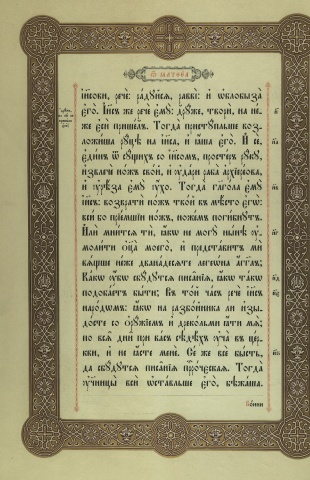 Ѿ Матѳеа
і҆и҃сови, речѐ: ра́дуйсѧ, раввѝ: и҆ ѡ҆блобыза̀
є҆го̀. І҆и҃съ же речѐ є҆мꙋ̀: дрꙋ́же, творѝ, на не́-
же є҆сѝ прише́лъ. Тогда̀ пристꙋ́пльше воз-
ложи́ша рꙋ́цѣ на і҆и҃са, и҆ ꙗ҆́ша є҆го̀. И҆ сѐ,
є҆ди́нъ ѿ сꙋ́щихъ со і҆и҃сомъ, просте́ръ рꙋ́кꙋ,
и҆звлечѐ но́жъ сво́й, и҆ ᲂу҆да́ри раба̀ а҆рхїере́ова,
и҆ ᲂу҆рѣ́за є҆мꙋ̀ ᲂу҆́хо. Тогда̀ гл҃го́ла є҆мꙋ̀
і҆и҃съ: возвратѝ но́жъ тво́й въ мѣ́сто є҆гѡ̀:
всѝ бо прїе́мшїи но́жъ, ноже́мъ поги́бнꙋтъ:
И҆лѝ мни́тсѧ тѝ, ꙗ҆́кѡ не могꙋ̀ нн҃ѣ ᲂу҆-
моли́ти ѻ҆ц҃а̀ моего̀, и҆ предста́витъ мѝ
вѧ́щше не́же двана́десѧте легеѡ́на а҆́гг҃лъ;
Ка́кѡ ᲂу҆̀бѡ сбꙋ́дꙋтсѧ писа̑нїѧ, ꙗ҆́кѡ та́кѡ
подоба́етъ бы́ти; Въ то́й ча́съ речѐ і҆и҃съ
наро́дѡмъ: ꙗ҆́кѡ на разбо́йника ли и҆зы-
до́сте со ѻ҆рꙋ́жїемъ и҆ дреко́льми ꙗ҆́ти мѧ̀;
по всѧ̑ дни̑ при ва́съ сѣдѣ́хъ ᲂу҆чѧ̀ въ це́р-
кви, и҆ не ꙗ҆́сте менѐ. Се́ же всѐ бы́сть,
да сбꙋ́дꙋтсѧ писа̑нїѧ прⷪ҇ро́ческаѧ. Тогда̀
ᲂу҆чн҃цы̀ всѝ ѡ҆ста́вльше є҆го̀, бѣжа́ша.
Во́ини